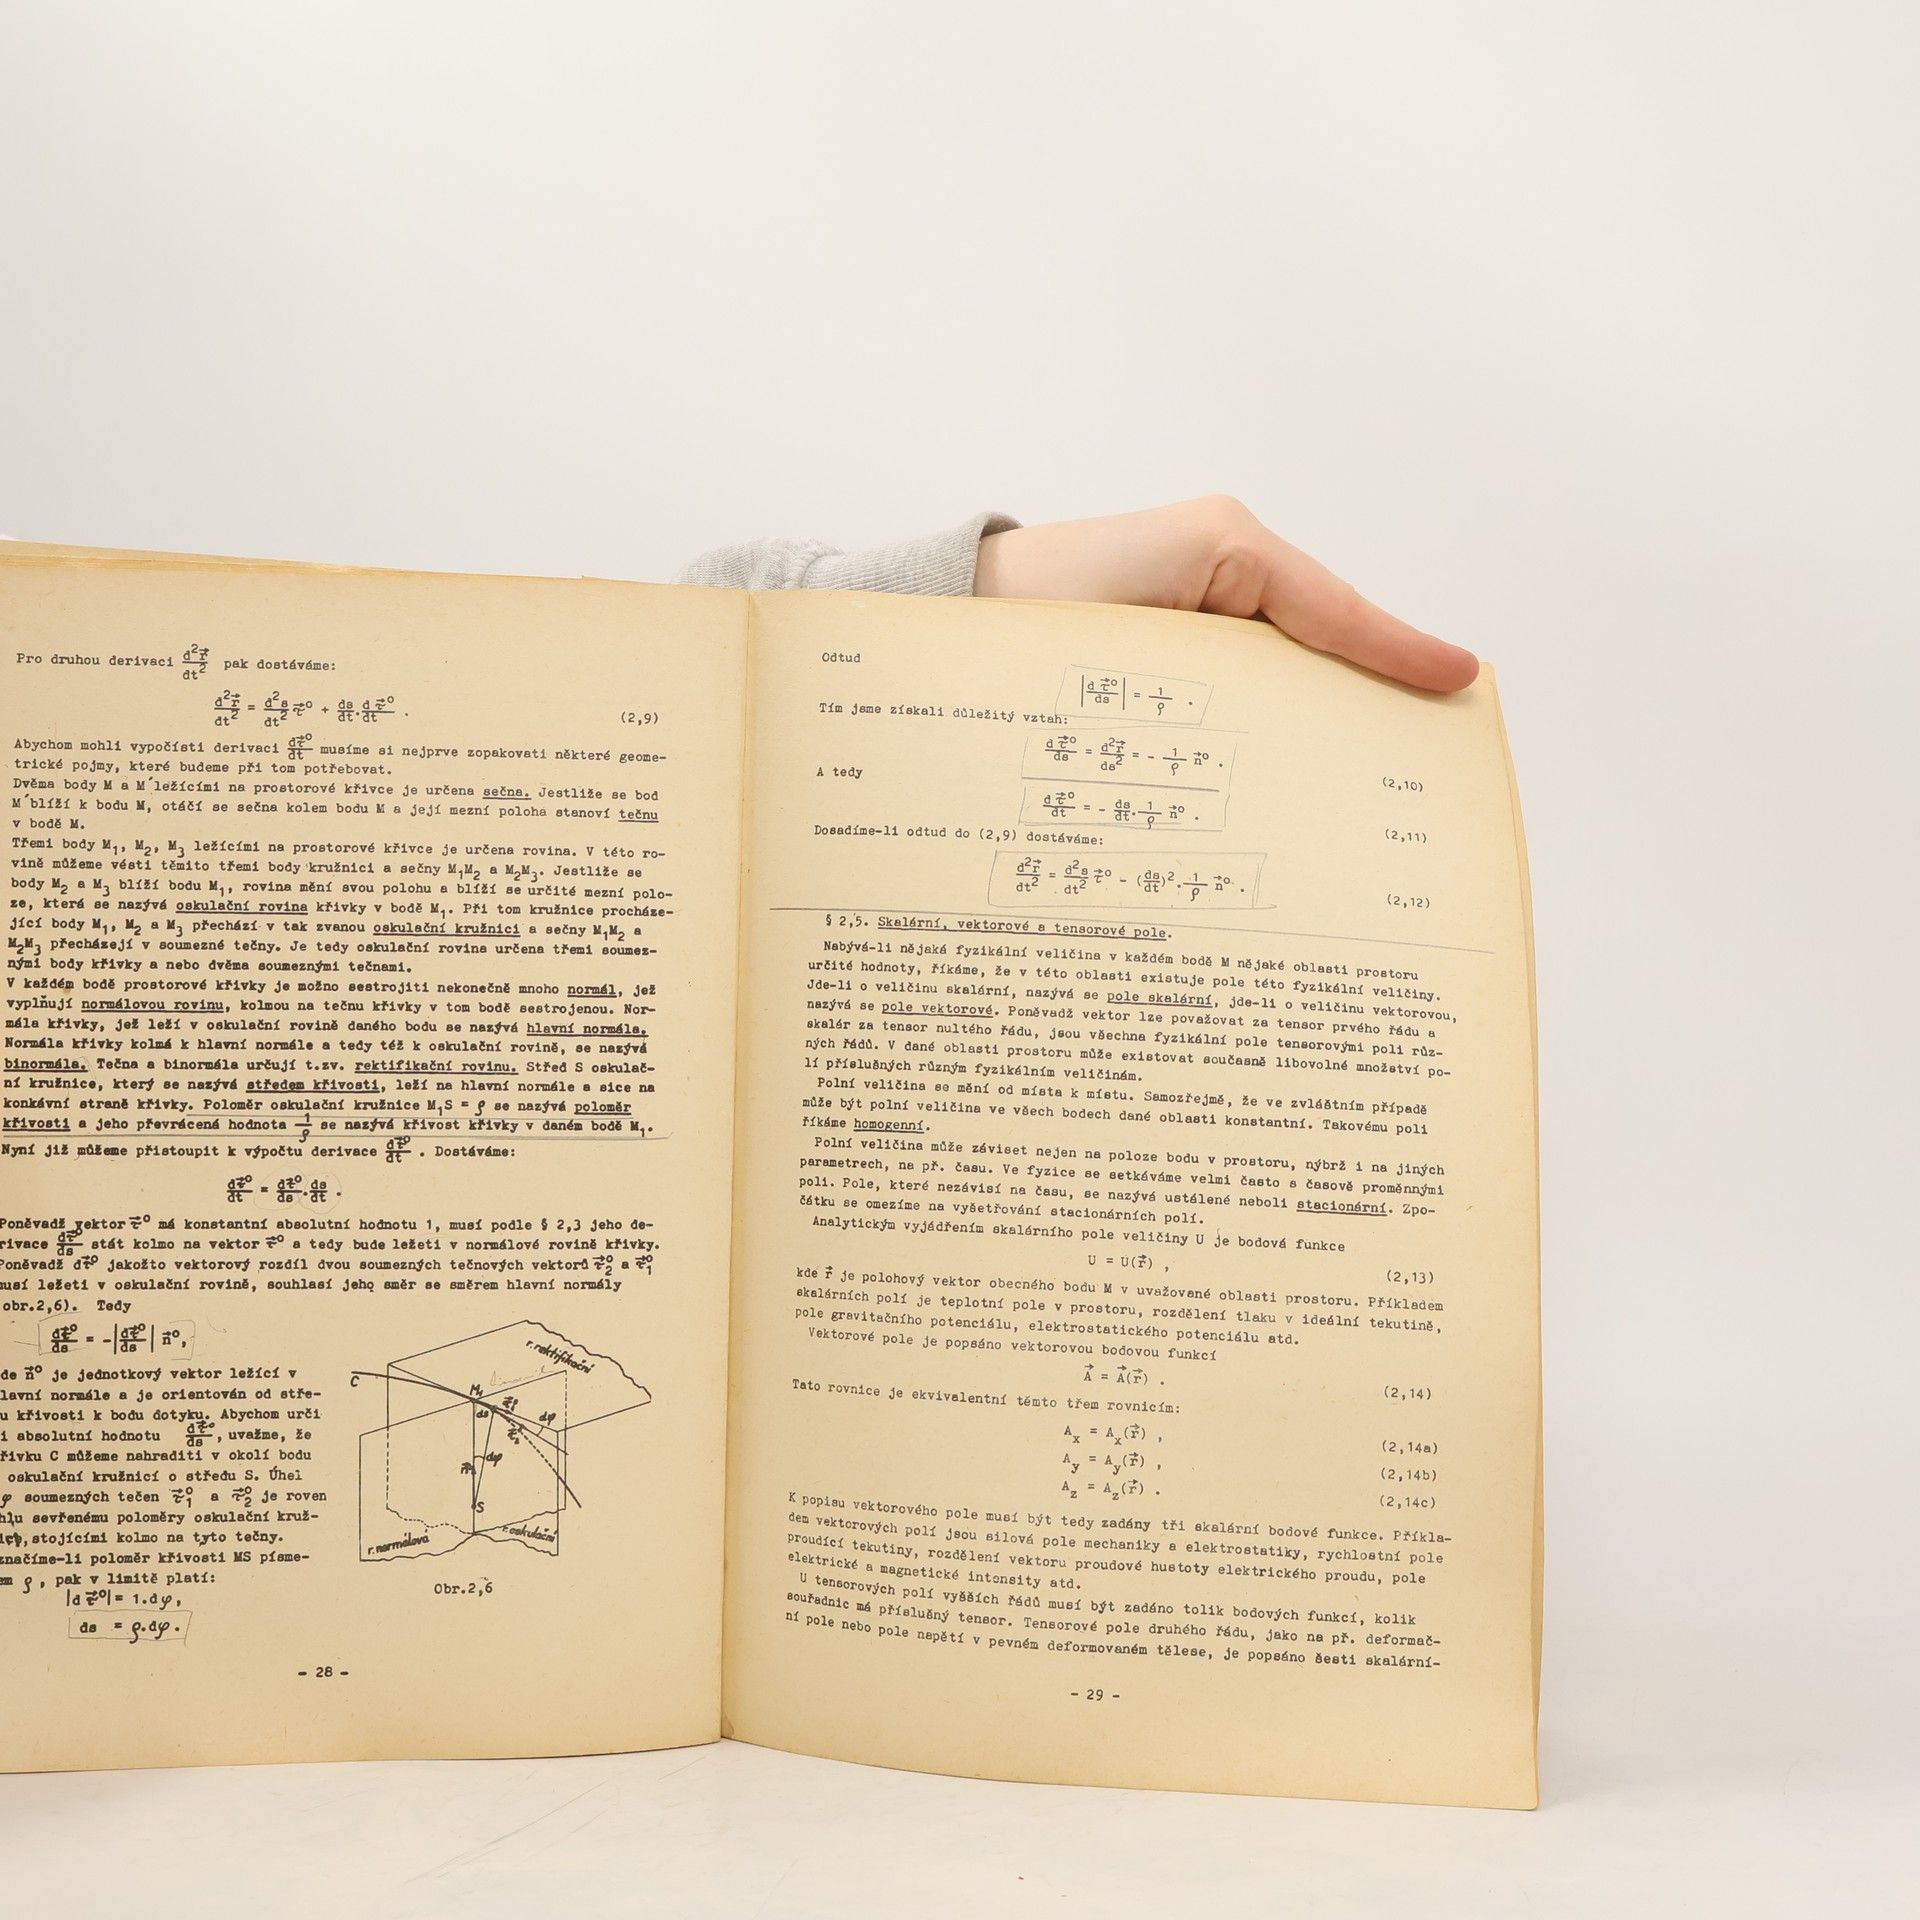 Pro druhou derivaci d²r⃗/dt² pak dostáváme:
d²r⃗/dt² = d²s/dt² τ⃗⁰ + ds/dt . dτ⃗⁰/dt . (2,9)
Abychom mohli vypočísti derivaci dτ⃗⁰/dt musíme si nejprve zopakovati některé geome-
trické pojmy, které budeme při tom potřebovat.
Dvěma body M a M´ležícími na prostorové křivce je určena sečna. Jestliže se bod
M´blíží k bodu M, otáčí se sečna kolem bodu M a její mezní poloha stanoví tečnu
v bodě M.
Třemi body M₁, M₂, M₃ ležícími na prostorové křivce je určena rovina. V této ro-
vině můžeme vésti těmito třemi body kružnici a sečny M₁M₂ a M₂M₃. Jestliže se
body M₂ a M₃ blíží bodu M₁, rovina mění svou polohu a blíží se určité mezní polo-
ze, která se nazývá oskulační rovina křivky v bodě M₁. Při tom kružnice procháze-
jící body M₁, M₂ a M₃ přechází v tak zvanou oskulační kružnici a sečny M₁M₂ a
M₂M₃ přecházejí v soumezné tečny. Je tedy oskulační rovina určena třemi soumez-
nými body křivky a nebo dvěma soumeznými tečnami.
V každém bodě prostorové křivky je možno sestrojiti nekonečně mnoho normál, jež
vyplňují normálovou rovinu, kolmou na tečnu křivky v tom bodě sestrojenou. Nor-
mála křivky, jež leží v oskulační rovině daného bodu se nazývá hlavní normála.
Normála křivky kolmá k hlavní normále a tedy též k oskulační rovině, se nazývá
binormála. Tečna a binormála určují t.zv. rektifikační rovinu. Střed S oskulač-
ní kružnice, který se nazývá středem křivosti, leží na hlavní normále a sice na
konkávní straně křivky. Poloměr oskulační kružnice M₁S = ρ se nazývá poloměr
křivosti a jeho převrácená hodnota 1/ρ se nazývá křivost křivky v daném bodě M₁.
Nyní již můžeme přistoupit k výpočtu derivace dτ⃗⁰/dt . Dostáváme:
dτ⃗⁰/dt = dτ⃗⁰/ds . ds/dt .
Poněvadž vektor τ⃗⁰ má konstantní absolutní hodnotu 1, musí podle § 2,3 jeho de-
rivace dτ⃗⁰/ds stát kolmo na vektor τ⃗⁰ a tedy bude ležeti v normálové rovině křivky.
Poněvadž dτ⃗⁰ jakožto vektorový rozdíl dvou soumezných tečnových vektorů τ⃗₂⁰ a τ⃗₁⁰
musí ležeti v oskulační rovině, souhlasí jeho směr se směrem hlavní normály
obr.2,6). Tedy
dτ⃗⁰/ds = -|dτ⃗⁰/ds| n⃗⁰,
de n⃗⁰ je jednotkový vektor ležící v
lavní normále a je orientován od stře-
u křivosti k bodu dotyku. Abychom urči
i absolutní hodnotu dτ⃗⁰/ds , uvažme, že
řivku C můžeme nahraditi v okolí bodu
oskulační kružnicí o středu S. Úhel
φ soumezných tečen τ⃗₁⁰ a τ⃗₂⁰ je roven
hlu sevřenému poloměry oskulační kruž-
ice, stojícími kolmo na tyto tečny.
značíme-li poloměr křivosti MS písme-
em ρ , pak v limitě platí:
|dτ⃗⁰| = 1.dφ,
ds = ρ.dφ.
r.rektifikační
C
M₁
ds
τ⃗₁⁰
τ⃗₂⁰
dφ
dφ
S
r.normálová
r.oskulační
Obr.2,6
- 28 -
Odtud
|dτ⃗⁰/ds| = 1/ρ .
Tím jsme získali důležitý vztah:
dτ⃗⁰/ds = d²r⃗/ds² = - 1/ρ n⃗⁰ . (2,10)
A tedy
dτ⃗⁰/dt = - ds/dt . 1/ρ n⃗⁰ . (2,11)
Dosadíme-li odtud do (2,9) dostáváme:
d²r⃗/dt² = d²s/dt² τ⃗⁰ - (ds/dt)² . 1/ρ n⃗⁰ . (2,12)
§ 2,5. Skalární, vektorové a tensorové pole.
Nabývá-li nějaká fyzikální veličina v každém bodě M nějaké oblasti prostoru
určité hodnoty, říkáme, že v této oblasti existuje pole této fyzikální veličiny.
Jde-li o veličinu skalární, nazývá se pole skalární, jde-li o veličinu vektorovou,
nazývá se pole vektorové. Poněvadž vektor lze považovat za tensor prvého řádu a
skalár za tensor nultého řádu, jsou všechna fyzikální pole tensorovými poli růz-
ných řádů. V dané oblasti prostoru může existovat současně libovolné množství po-
lí příslušných různým fyzikálním veličinám.
Polní veličina se mění od místa k místu. Samozřejmě, že ve zvláštním případě
může být polní veličina ve všech bodech dané oblasti konstantní. Takovému poli
říkáme homogenní.
Polní veličina může záviset nejen na poloze bodu v prostoru, nýbrž i na jiných
parametrech, na př. času. Ve fyzice se setkáváme velmi často s časově proměnnými
poli. Pole, které nezávisí na času, se nazývá ustálené neboli stacionární. Zpo-
čátku se omezíme na vyšetřování stacionárních polí.
Analytickým vyjádřením skalárního pole veličiny U je bodová funkce
U = U(r⃗) , (2,13)
kde r⃗ je polohový vektor obecného bodu M v uvažované oblasti prostoru. Příkladem
skalárních polí je teplotní pole v prostoru, rozdělení tlaku v ideální tekutině,
pole gravitačního potenciálu, elektrostatického potenciálu atd.
Vektorové pole je popsáno vektorovou bodovou funkcí
A⃗ = A⃗(r⃗) . (2,14)
Tato rovnice je ekvivalentní těmto třem rovnicím:
Aₓ = Aₓ(r⃗) , (2,14a)
A_y = A_y(r⃗) , (2,14b)
A_z = A_z(r⃗) . (2,14c)
K popisu vektorového pole musí být tedy zadány tři skalární bodové funkce. Příkla-
dem vektorových polí jsou silová pole mechaniky a elektrostatiky, rychlostní pole
proudící tekutiny, rozdělení vektoru proudové hustoty elektrického proudu, pole
elektrické a magnetické intensity atd.
U tensorových polí vyšších řádů musí být zadáno tolik bodových funkcí, kolik
souřadnic má příslušný tensor. Tensorové pole druhého řádu, jako na př. deformač-
ní pole nebo pole napětí v pevném deformovaném tělese, je popsáno šesti skalární-
- 29 -